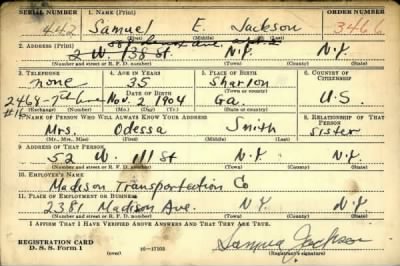 SERIAL NUMBER 1. NAME (Print) ORDER NUMBER
442 Samuel E. Jackson 3466
(First) (Middle) (Last)
2. ADDRESS (Print)
2 W 138 St. N.Y. N.Y.
(Number and street or R. F. D. number) (Town) (County) (State)
3. TELEPHONE 4. AGE IN YEARS 5. PLACE OF BIRTH 6. COUNTRY OF CITIZENSHIP
none 35 Sharlon
DATE OF BIRTH (Town or county)
2468-7th Ave Nov. 2 1904 Ga. U.S.
#16
(Exchange) (Number) (Mo.) (Day) (Yr.) (State or country)
7. NAME OF PERSON WHO WILL ALWAYS KNOW YOUR ADDRESS 8. RELATIONSHIP OF THAT PERSON
Mrs. Odessa Smith sister
(Mr., Mrs., Miss) (First) (Middle) (Last)
9. ADDRESS OF THAT PERSON
52 W. 111 St N.Y. N.Y.
(Number and street or R. F. D. number) (Town) (County) (State)
10. EMPLOYER'S NAME
Madison Transportation Co
11. PLACE OF EMPLOYMENT OR BUSINESS
2381 Madison Ave. N.Y. N.Y.
(Number and street or R. F. D. number) (Town) (County) (State)
I AFFIRM THAT I HAVE VERIFIED ABOVE ANSWERS AND THAT THEY ARE TRUE.
REGISTRATION CARD
D. S. S. Form 1 (over) 16-17105 Samuel Jackson
(Registrant's signature)